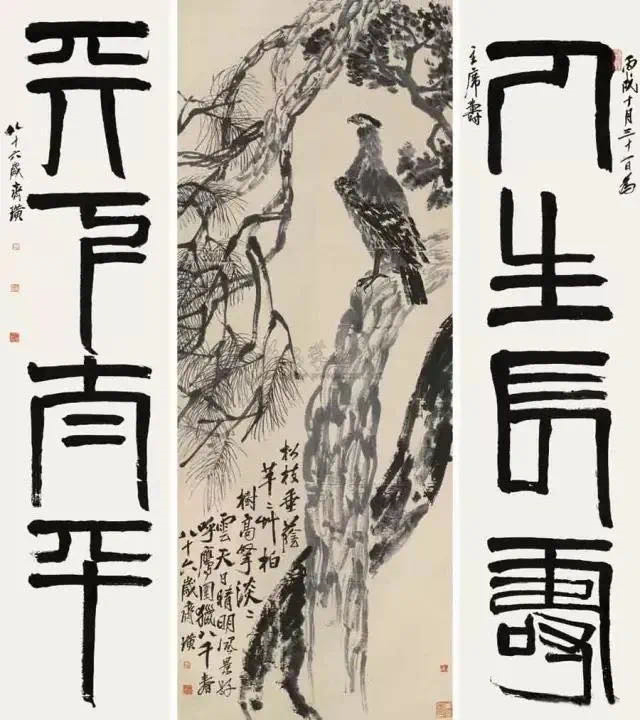 丙戌十月三十一日為
主席壽
人生長壽
松枝垂蔭
芊〻艸柏
樹高擎淡〻
雲天日晴明風景好
呼鷹圍獵八千壽
八十六歲齊璜
天下太平
八十六歲齊璜